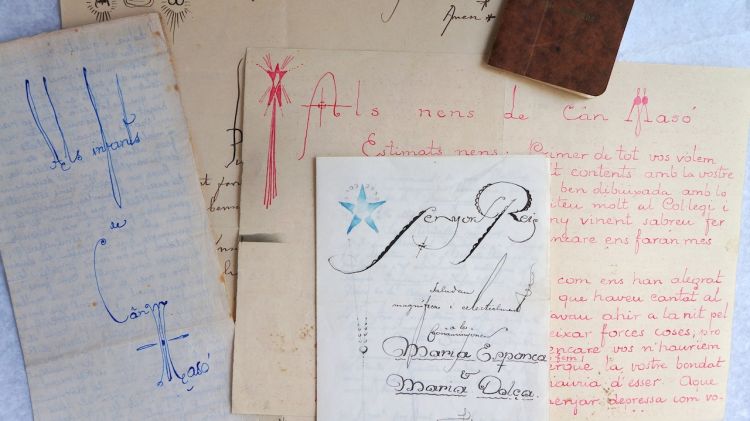 Amen
Als infants
de
Càn
Masó
Als nens de Càn Masó
Estimats nens: Primer de tot vos volem
contents amb la vostre
ben dibuixada amb lo
molt al Collegi i
ny vinent sabreu fer
ens faran mes
com ens han alegrat
que haveu cantat al
avau ahir a la nit pel
eixar forces coses; pro
encare vos n'hauriem
erque la vostre bondat
d'esser. Aque
depressa com vo-
Senyors Reig
saludan
magnifica i celestialment
a les
Maria Esponça
&
Maria Dolça.